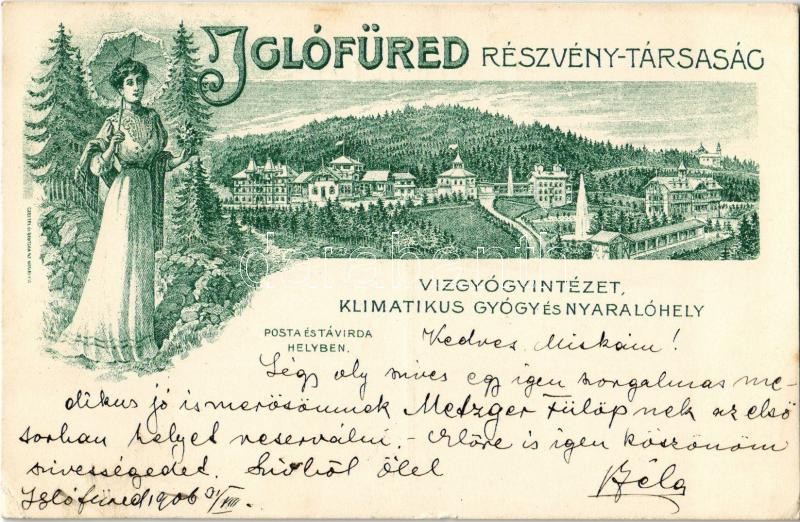 IGLÓFÜRED RÉSZVÉNY-TÁRSASÁG
VIZGYÓGYINTÉZET,
KLIMATIKUS GYÓGY ÉS NYARALÓHELY
POSTA ÉS TÁVIRDA
HELYBEN.
Kedves Miskám!
Légy oly szives egy igen szorgalmas me-
dikus jó ismerősömnek Metzger Fülöpnek az első
sorban helyet reserválni. - Előre is igen köszönöm
szivességedet. Szivből ölel
Béla
Iglófüred 1906 31/VIII.
darabanth.com